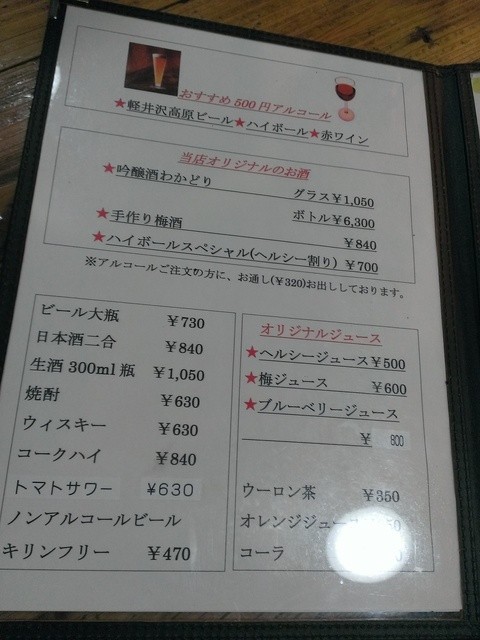 おすすめ500円アルコール
★軽井沢高原ビール★ハイボール★赤ワイン
当店オリジナルのお酒
★吟醸酒わかどり グラス￥1,050
ボトル￥6,300
★手作り梅酒 ￥840
★ハイボールスペシャル(ヘルシー割り) ￥700
※アルコールご注文の方に、お通し(￥320)お出ししております。
ビール大瓶 ￥730
日本酒二合 ￥840
生酒300ml瓶 ￥1,050
焼酎 ￥630
ウィスキー ￥630
コークハイ ￥840
トマトサワー ￥630
ノンアルコールビール
キリンフリー ￥470
オリジナルジュース
★ヘルシージュース￥500
★梅ジュース ￥600
★ブルーベリージュース
￥ 800
ウーロン茶 ￥350
オレンジジュース
コーラ